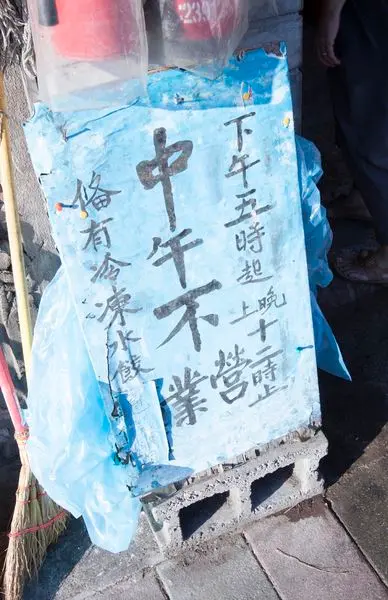 下午五時起
上晚十二時止
中午不營業
備有冷凍水餃